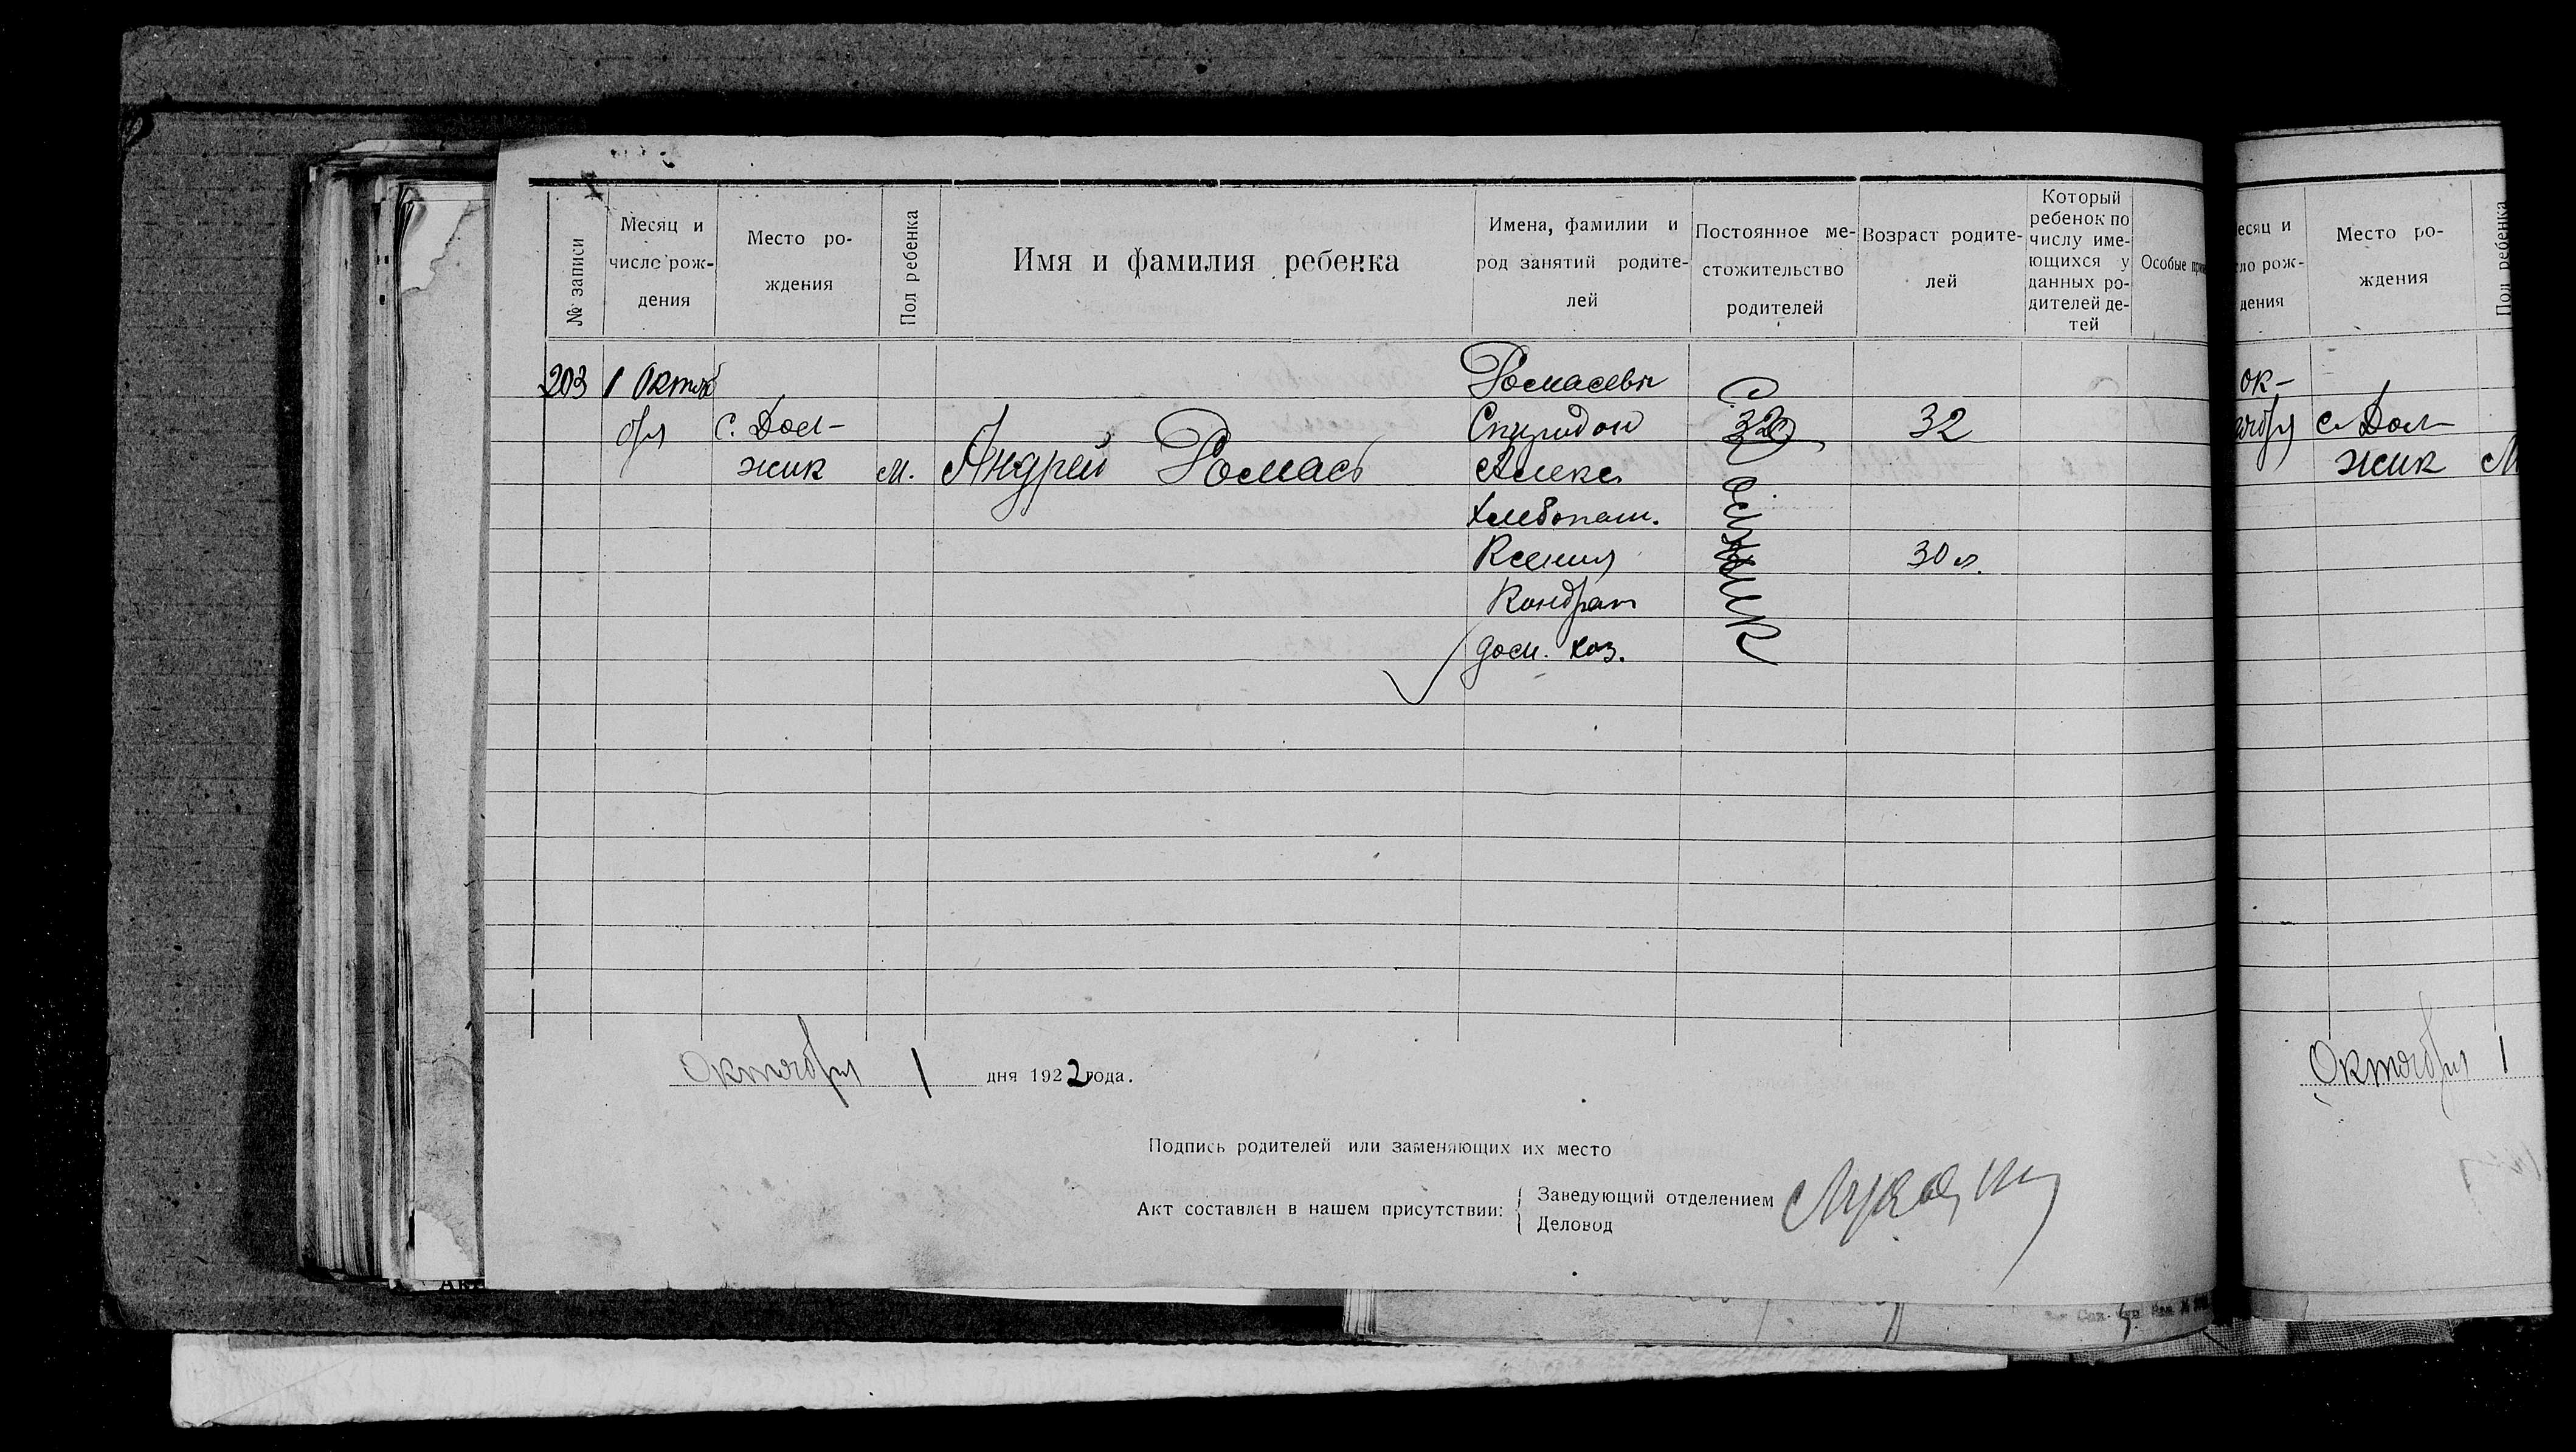 № записи
Месяц и
число рож-
дения
Место ро-
ждения
Пол ребенка
Имя и фамилия ребенка
Имена, фамилии и
род занятий родите-
лей
Постоянное ме-
стожительство
родителей
Возраст родите-
лей
Который
ребенок по
числу име-
ющихся у
данных ро-
дителей де-
тей
Особые
203
1 Октяб
бря
с. Дол-
жик
м.
Андрей Ромась
Ромасевы
Спиридон
Алекс
хлебопаш.
Ксения
Кондрат
дом. хоз.
с.
32
30 л.
Октября 1 дня 1922 года.
Подпись родителей или заменяющих их место
Акт составлен в нашем присутствии:
Заведующий отделением
Деловод
есяц и
ло рож-
дения
Место ро-
ждения
Пол ребенка
ок-
тября
с. Дол-
жик
М
Октября 1